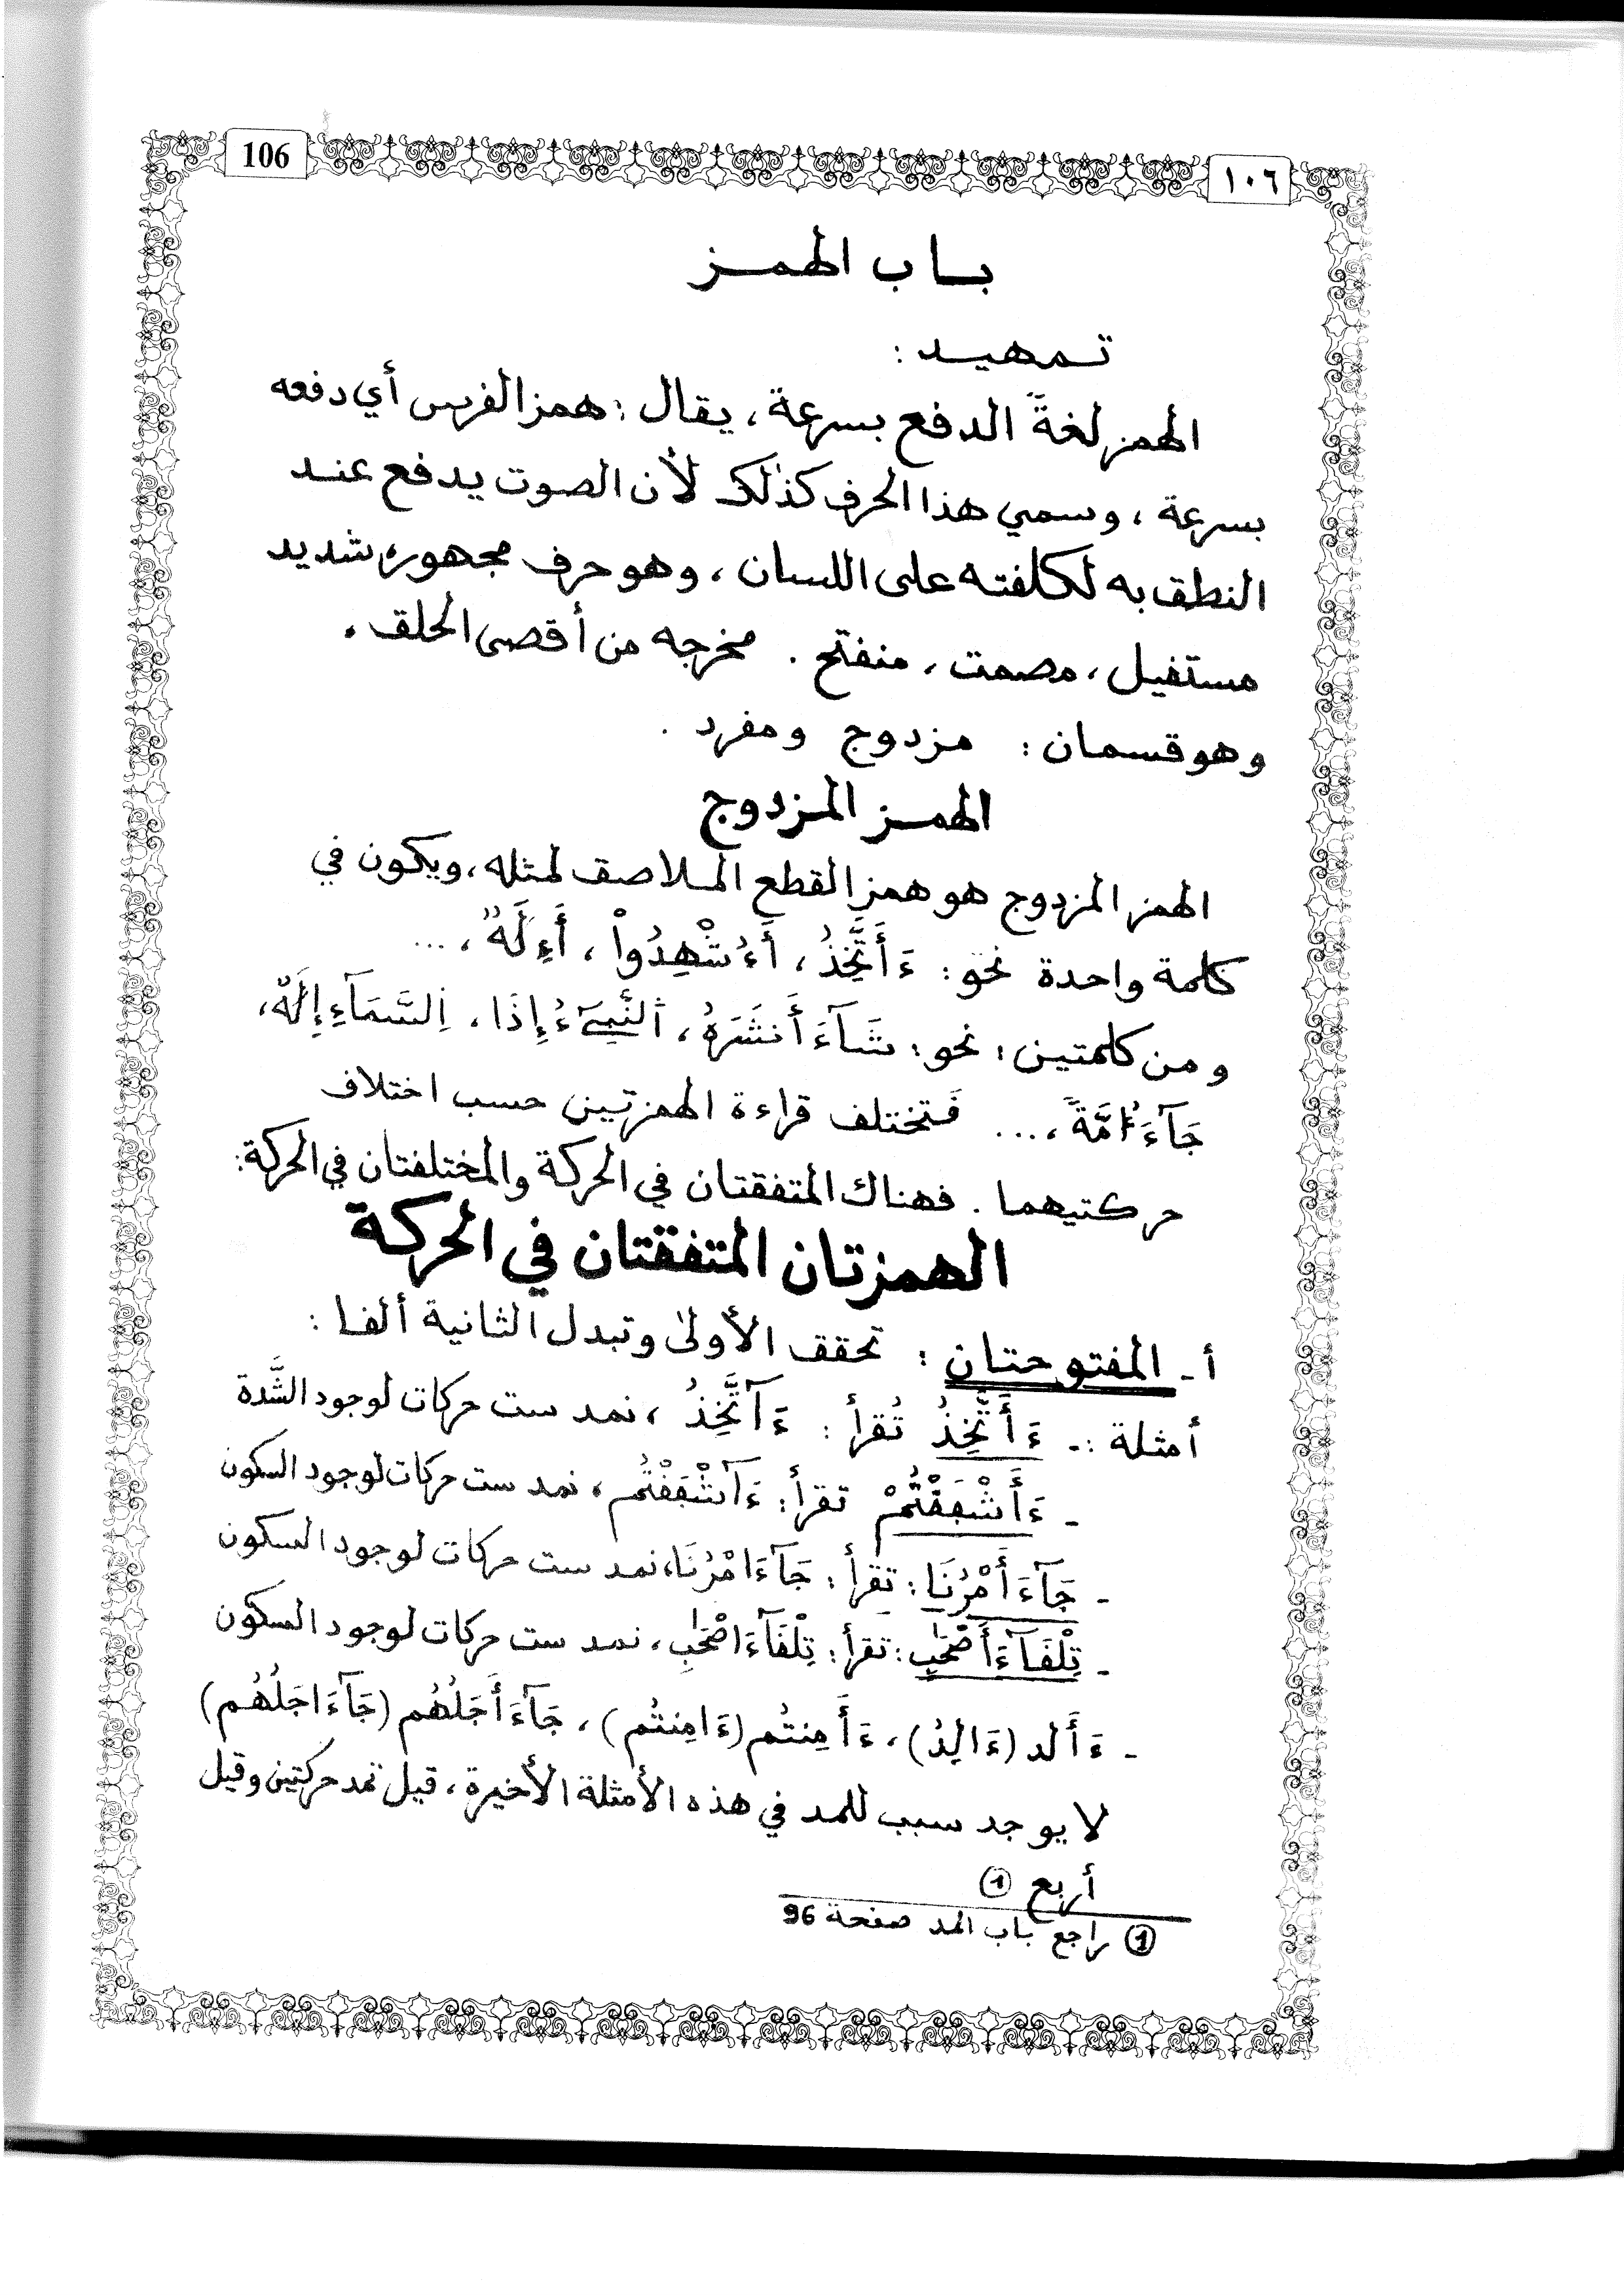 106
١٠٦
باب الهمز
تمهيد :
الهمز لغةً الدفع بسرعة، يقال : همز الفرس أي دفعه
بسرعة ، وسمي هذا الحرف كذلك لأن الصوت يدفع عند
النطق به لكلفته على اللسان ، وهو حرف مجهور، شديد
مستفيل ، مصمت ، منفتح . مخرجه من أقصى الحلق .
وهو قسمان : مزدوج ومفرد .
الهمز المزدوج
الهمز المزدوج هو همز القطع الملاصق لمثله ، ويكون في
كلمة واحدة نحو : ءَأَتَّخِذُ ، أَءُشْهِدُواْ ، أَءِلَٰهٌ ، ...
ومن كلمتين : نحو : شَآءَ أَنشَرَهُ ، اَلنَّبِيٓءُ إِذَا ، اِلسَّمَآءِ إِلَٰهٌ ،
جَآءَ اُمَّةً ، ... فَتختلف قراءة الهمزتين حسب اختلاف
حركتيهما . فهناك المتفقتان في الحركة والمختلفتان في الحركة :
الهمزتان المتفقتان في الحركة
أ - المفتوحتان : تحقق الأولى وتبدل الثانية ألفا :
أمثلة :- ءَأَتَّخِذُ تُقرأ : ءَآتَّخِذُ ، نمد ست حركات لوجود الشَّدة
- ءَأَشْفَقْتُمْ تقرأ : ءَآشْفَقْتُم ، نمد ست حركات لوجود السكون
- جَآءَ أَمْرُنَا : تقرأ : جَآءَ امْرُنَا، نمد ست حركات لوجود السكون
- تِلْقَآءَ أَصْحَٰبِ : تقرأ : تِلْقَآءَ اصْحَٰبِ ، نمد ست حركات لوجود السكون
- ءَأَلد (ءَالِدُ) ، ءَأَمِنتُم (ءَامِنتُم) ، جَآءَ أَجَلُهُم (جَآءَ اجَلُهُم)
لا يوجد سبب للمد في هذه الأمثلة الأخيرة ، قيل نمد حركتين وقيل
أربع ①
① راجع باب المد صفحة 96